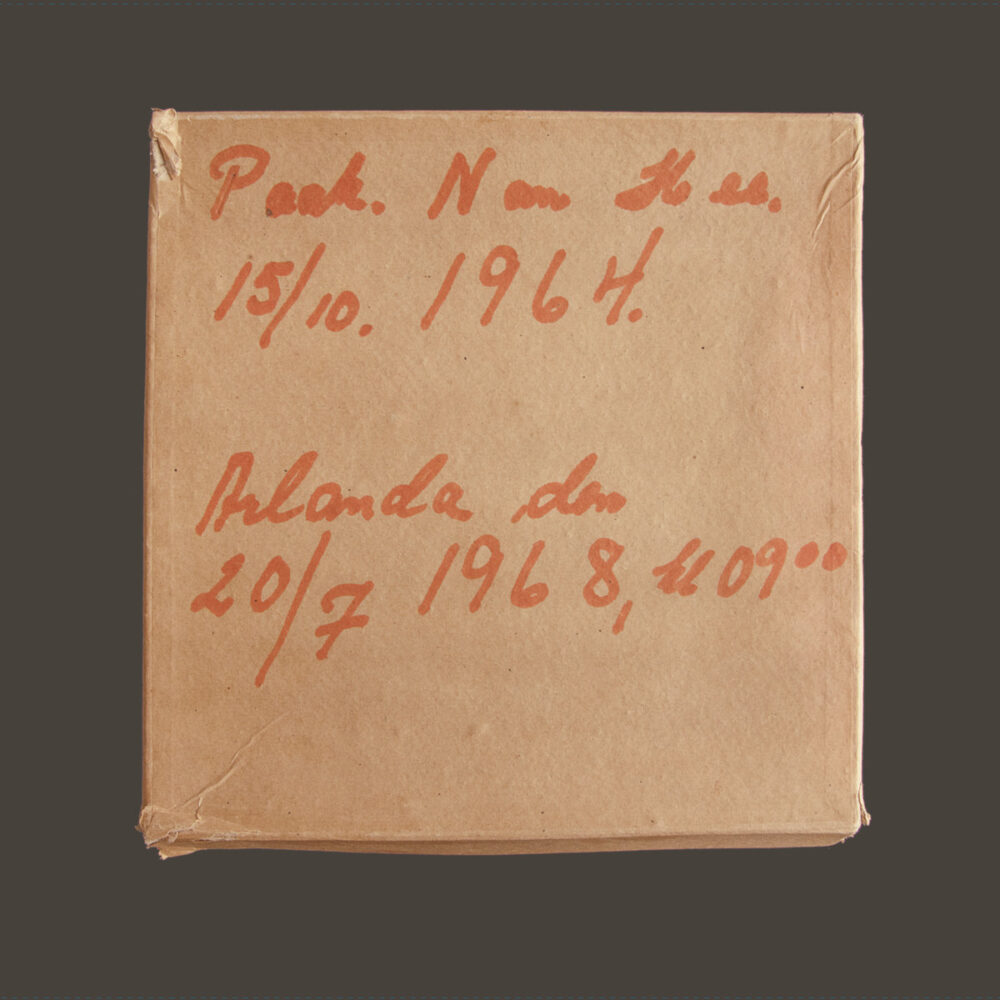 Paak. Nam
15/10. 1964.
Arlanda den
20/7 1968, kl 09⁰⁰